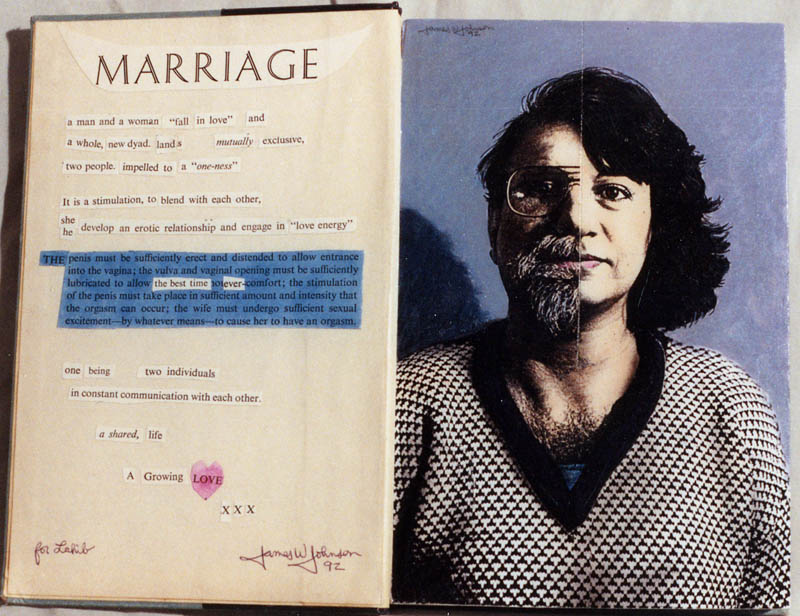 MARRIAGE
a man and a woman "fall in love" and
a whole, new dyad. lands mutually exclusive,
two people. impelled to a "one-ness"
It is a stimulation, to blend with each other,
she
he develop an erotic relationship and engage in "love energy"
THE penis must be sufficiently erect and distended to allow entrance
into the vagina; the vulva and vaginal opening must be sufficiently
lubricated to allow the best time ever-comfort; the stimulation
of the penis must take place in sufficient amount and intensity that
the orgasm can occur; the wife must undergo sufficient sexual
excitement—by whatever means—to cause her to have an orgasm.
one being two individuals
in constant communication with each other.
a shared, life
A Growing LOVE
X X X
for
James W Johnson
92
James W Johnson
92